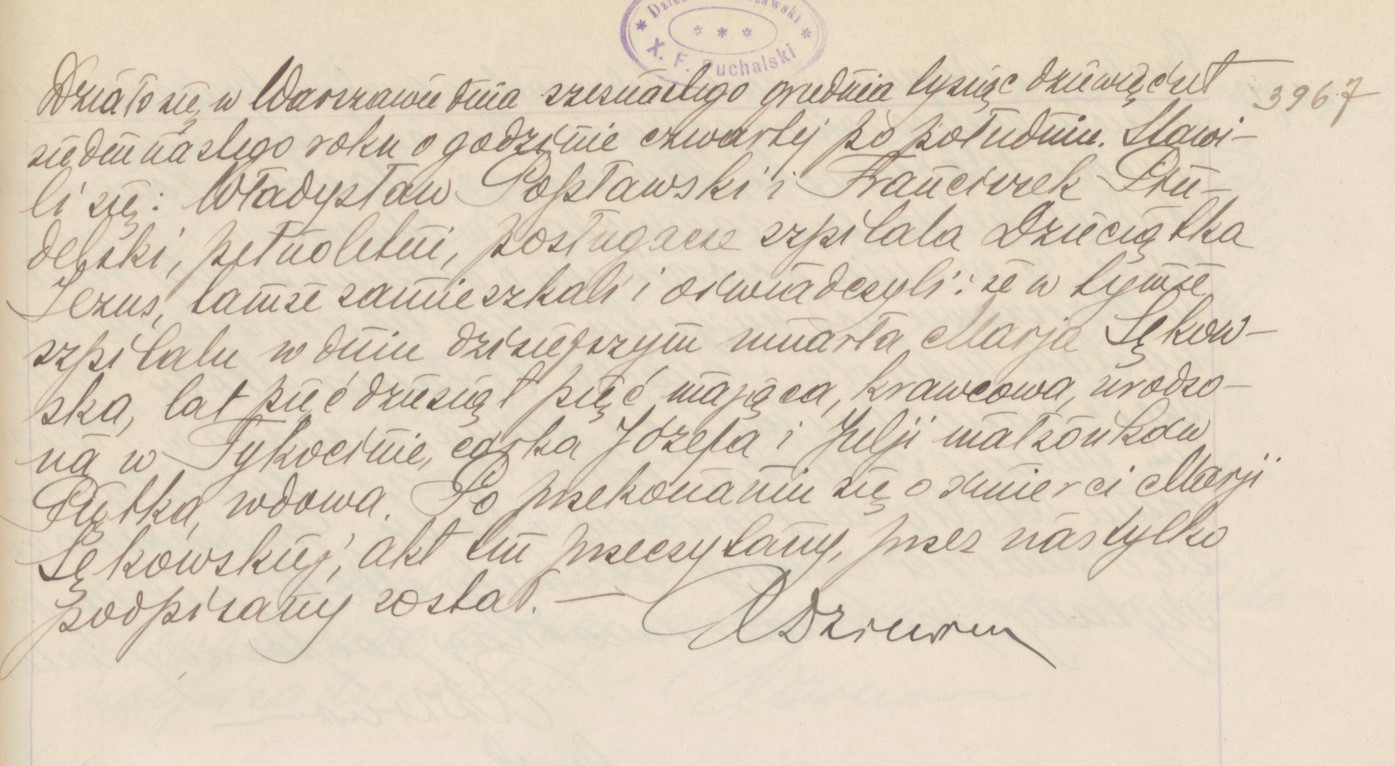 X. F. Suchalski
Działo się w Warszawie dnia szesnastego grudnia tysiąc dziewięćset
3967
siedemnastego roku o godzinie czwartej po południu. Stawi-
li się: Władysław Popławski i Franciszek
delski, pełnoletni, posługacze szpitala Dzieciątka
Jezus, tamże zamieszkali i oświadczyli: że w tymże
szpitalu w dniu dzisiejszym umarła Marja Sękow-
ska, lat pięćdziesiąt pięć mająca, krawcowa, urodzo-
na w Tykocinie, córka Józefa i Julji małżonków
wdowa. Po przekonaniu się o śmierci Marji
Sękowskiej, akt ten przeczytany, przez nas tylko
podpisany został. —